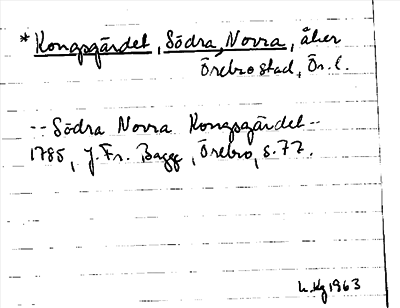 *Kongsgärdet, Södra, Norra, åker
Örebro stad, Ör. l.
-- Södra Norra Kongsgärdet --
1785, J. Fr. Bagge, Örebro, s. 77.
1963